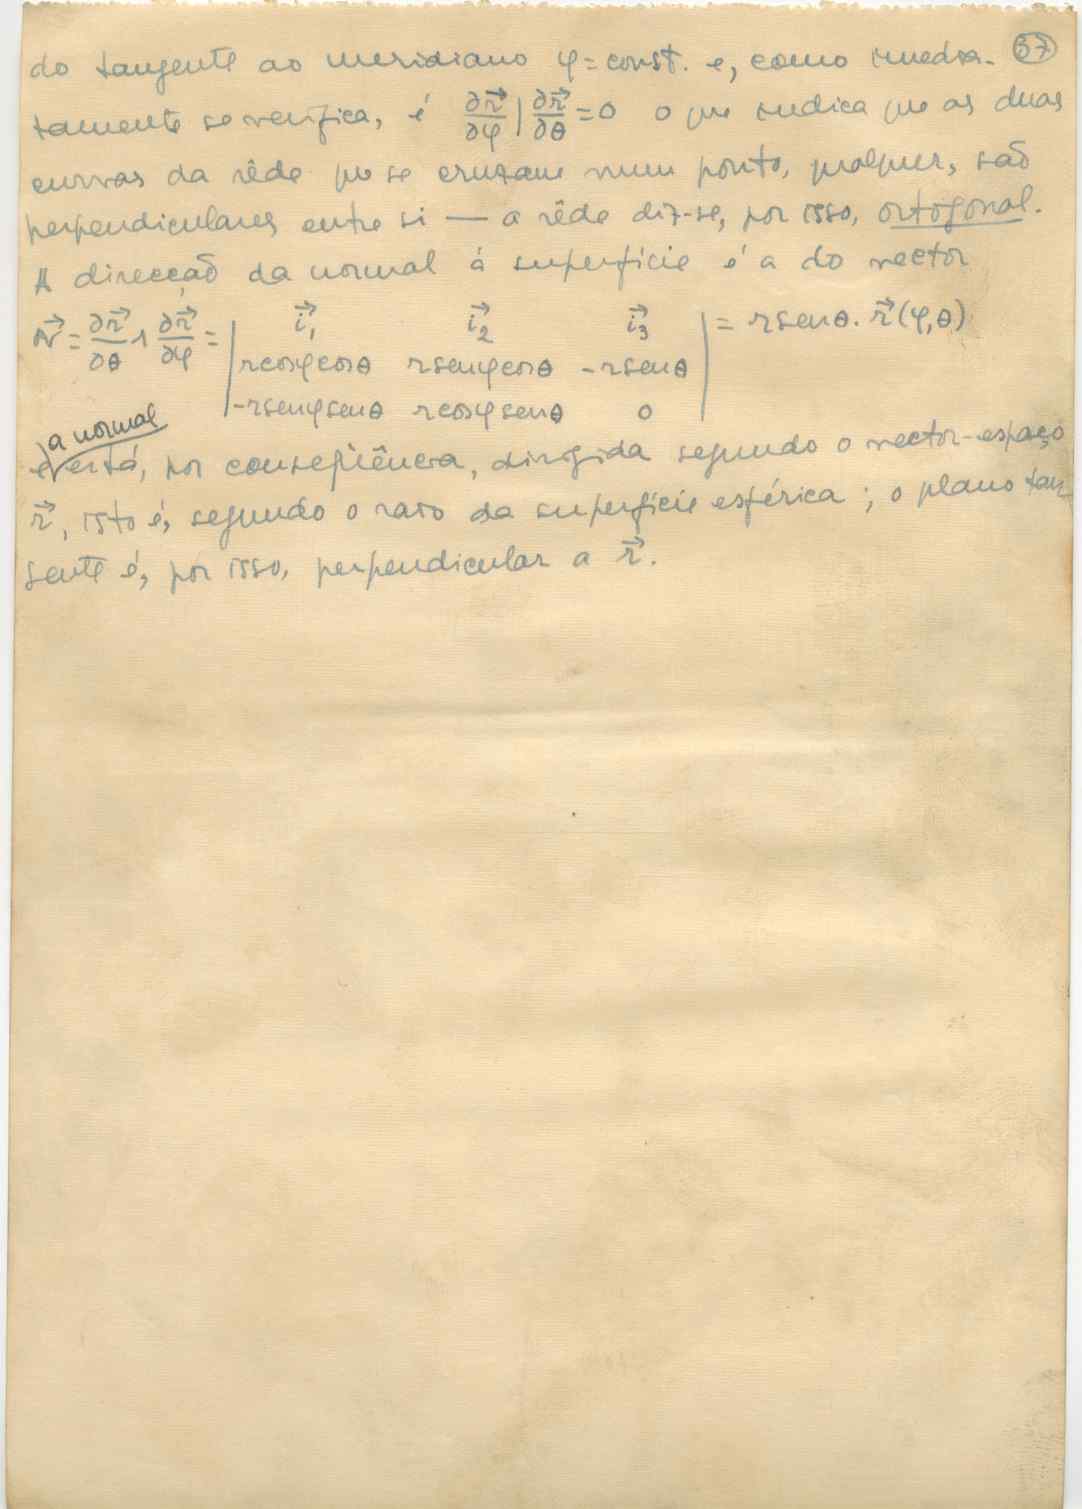 do tangente ao meridiano φ=const. e, como imedia- 37
tamente se verifica, é ∂r⃗/∂φ | ∂r⃗/∂θ = 0 o que indica que as duas
curvas da rêde que se cruzam num ponto, qualquer, são
perpendiculares entre si — a rêde diz-se, por isso, ortogonal.
A direcção da normal á superfície é a do vector
N⃗ = ∂r⃗/∂θ ∧ ∂r⃗/∂φ = | i⃗₁ i⃗₂ i⃗₃ | = r senθ. r⃗(φ,θ)
r cosφ cosθ r senφ cosθ - r senθ
- r senφ senθ r cosφ senθ 0
a normal
e está, por conseqüência, dirigida segundo o vector-espaço
r⃗, isto é, segundo o raio da superfície esférica; o plano tan
gente é, por isso, perpendicular a r⃗.